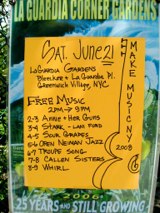 LA GUARDIA CORNER GARDENS
SAT. JUNE 21
LaGuardia Gardens
Bleecker + LaGuardia Pl.
Greenwich Village, NYC
FREE MUSIC
2pm → 9pm
2-3 Anne + Her Guns
3-4 Stark
4-5 Sour Grapes
5-6 Open Neman Jazz
6-7 Troupe Song
7-8 Callen Sisters
8-9 Whirl
MAKE MUSIC NY
2008
2006!
25 YEARS AND STILL GROWING